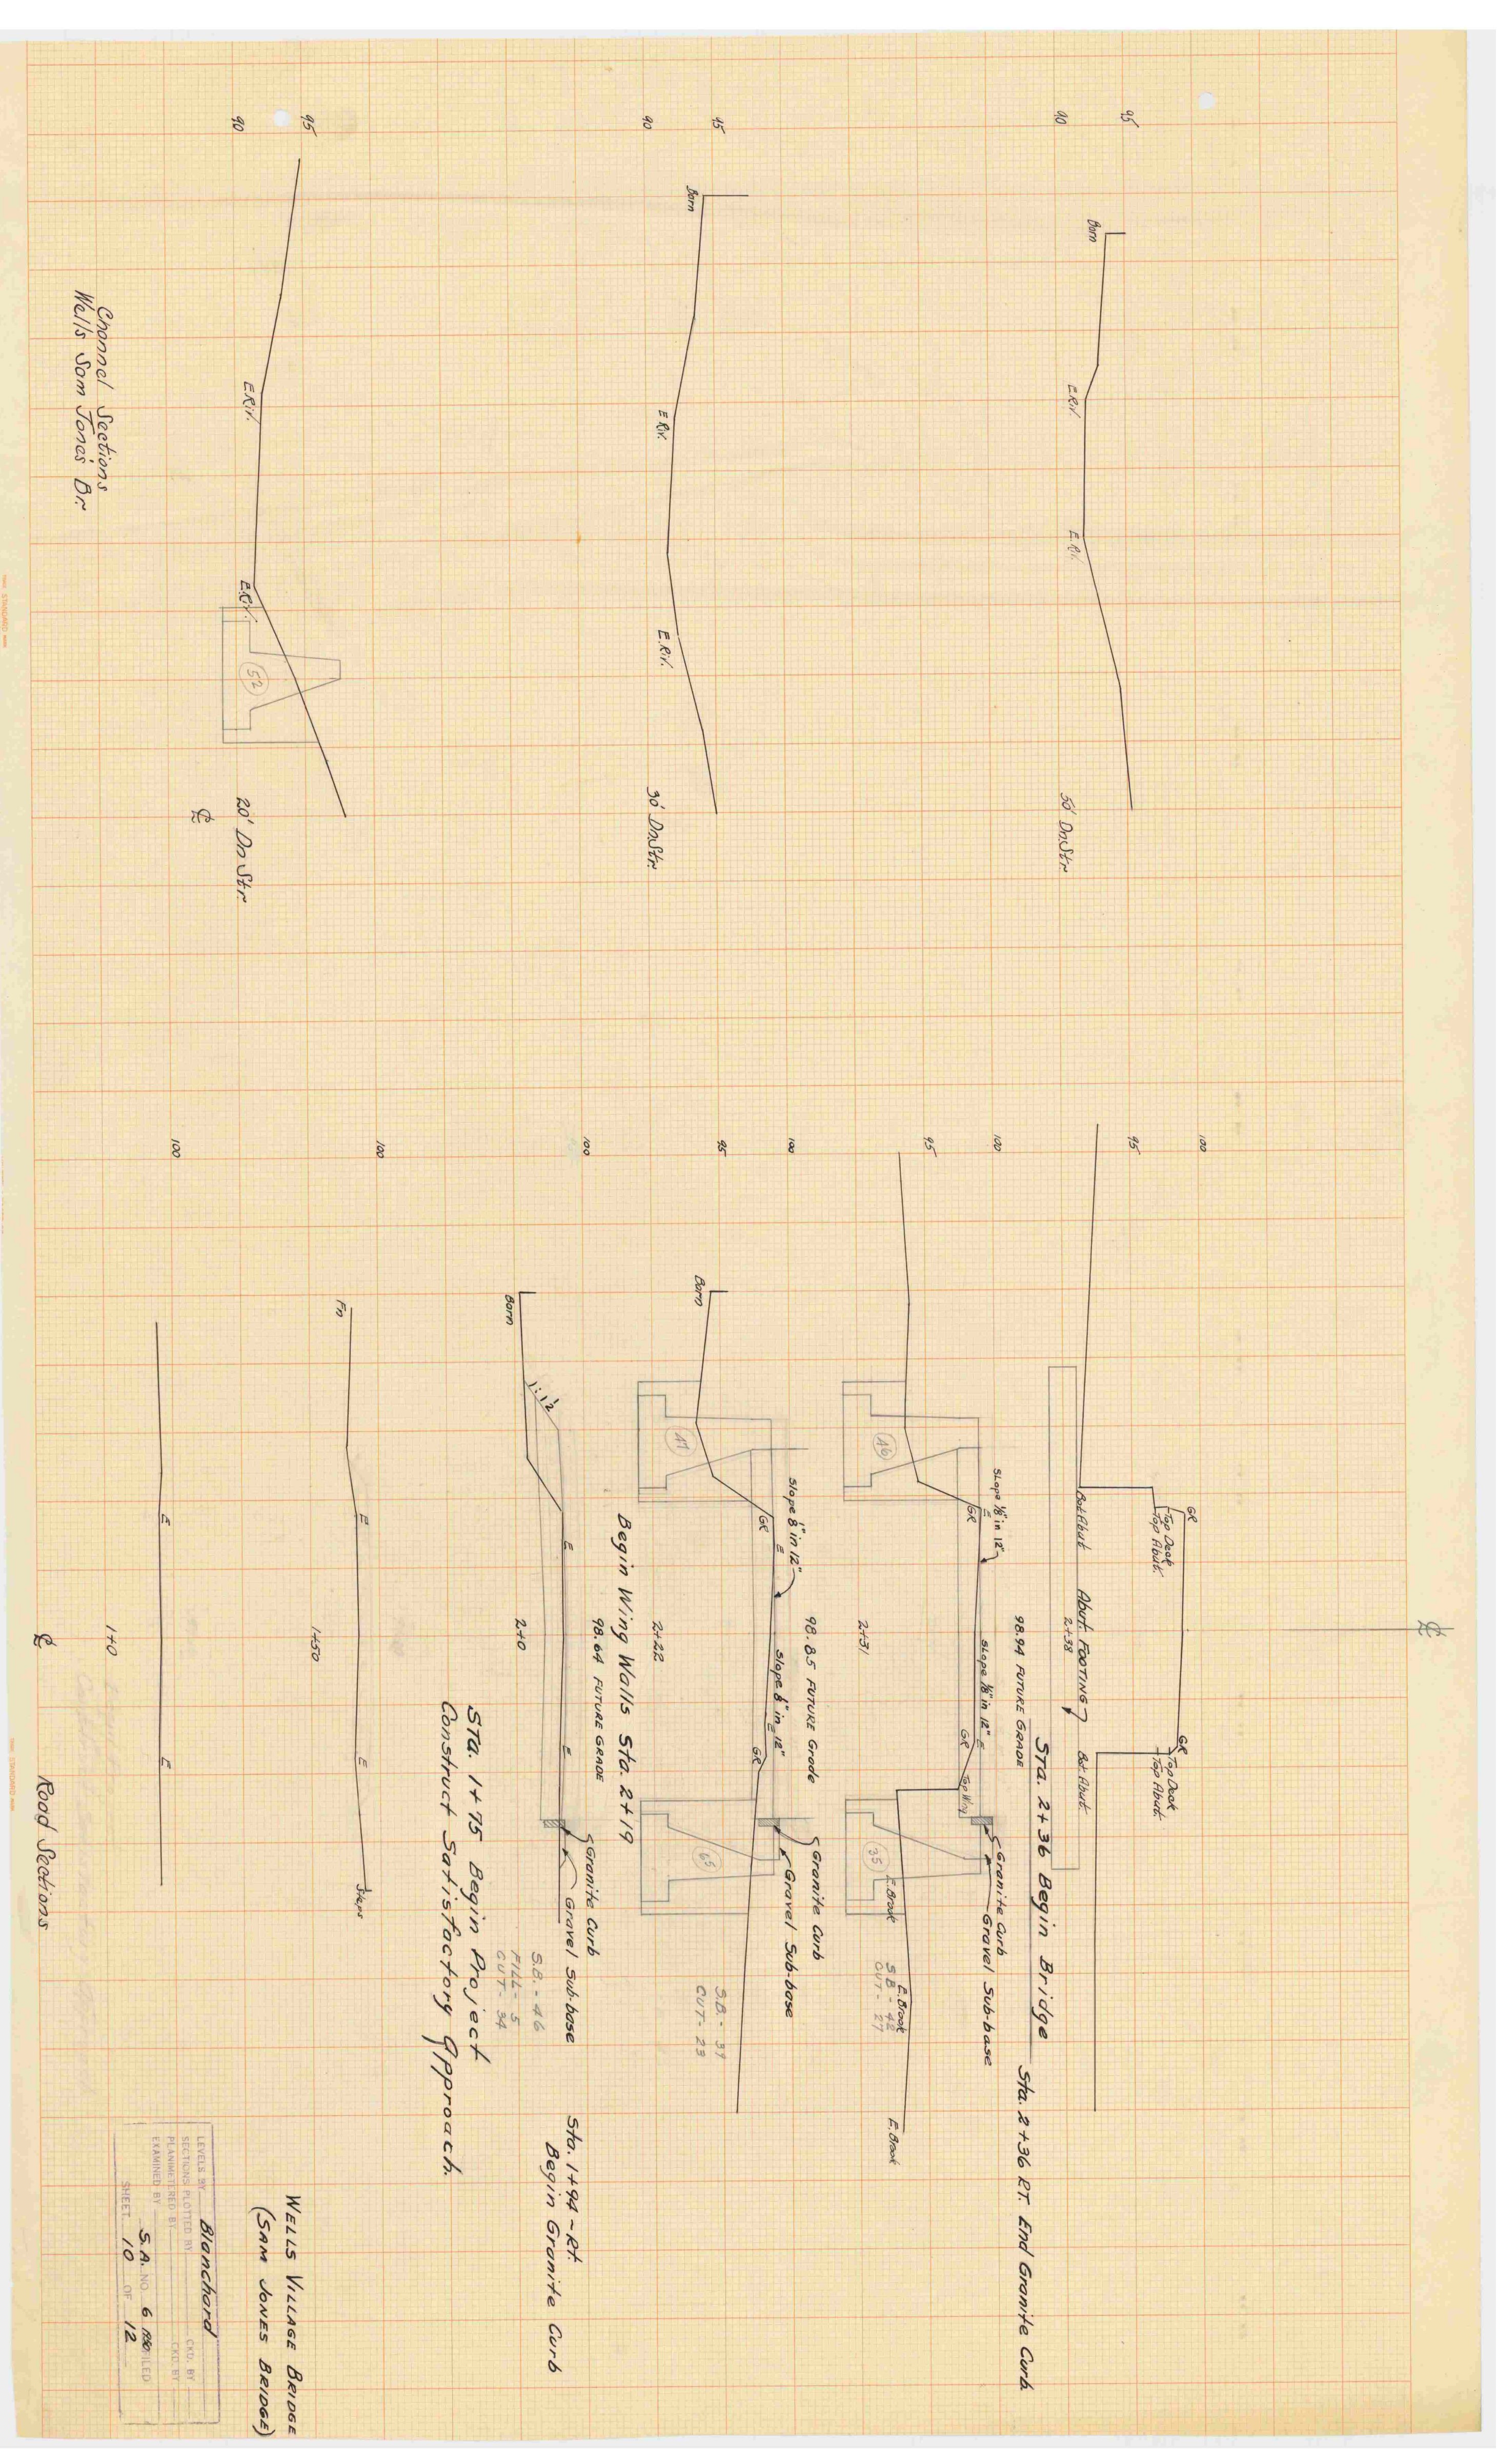 Channel Sections
Wells Sam Jones' Br.
90
95
E.Riv.
E.Riv.
52
20' Dn Str.
℄
90
95
Barn
E.Riv.
E.Riv.
30' Dn.Str.
90
95
Barn
E.Riv.
E.Riv.
50' Dn.Str
100
95
GR
Top Deck
Top Abut.
Bot. Abut.
Abut. FOOTING
2+38
Bot. Abut.
GR
Top Deck
Top Abut.
Sta. 2+36 Begin Bridge
Sta. 2+36 RT. End Granite Curb
98.94 FUTURE GRADE
100
95
Slope 1/8" in 12"
GR
E
46
Slope 1/8" in 12"
E
GR
Top Wing
Granite Curb
Gravel Sub-base
35
E.Brook
E.Brook
E.Brook
S.B. - 42
CUT - 27
2+31
98.85 FUTURE Grade
100
95
Barn
47
GR
E
Slope 1/8" in 12"
Slope 1/8" in 12"
E
GR
Granite Curb
Gravel Sub-base
65
S.B. - 39
CUT - 23
2+22
Begin Wing Walls Sta. 2+19
98.64 FUTURE GRADE
100
Barn
1:1½
E
E
Granite Curb
Gravel Sub-base
S.B. - 46
FILL - 5
CUT - 34
2+0
Sta. 1+94 - RT
Begin Granite Curb
STA. 1+75 Begin Project
Construct Satisfactory Approach.
100
Fn
E
E
Steps
1+50
100
E
E
1+0
℄
Road Sections
WELLS VILLAGE BRIDGE
(SAM JONES BRIDGE)
LEVELS BY Blanchard
SECTIONS PLOTTED BY CKD. BY
PLANIMETERED BY CKD. BY
EXAMINED BY
S.A. NO. 6 FILED
SHEET 10 OF 12
STANDARD
STANDARD